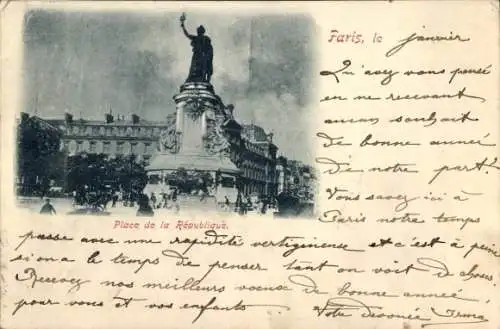 Paris, le janvier
Qu'avez vous pensé
en ne recevant
aucun souhait
de bonne année
de notre part?
Vous savez ici à
Paris notre temps
Place de la République.
passe avec une rapidité vertigineuse et c'est à peine
si on a le temps de penser tant on voit de choses
Recevez nos meilleurs voeux de bonne année,
pour vous et vos enfants Votre dévouée Irma